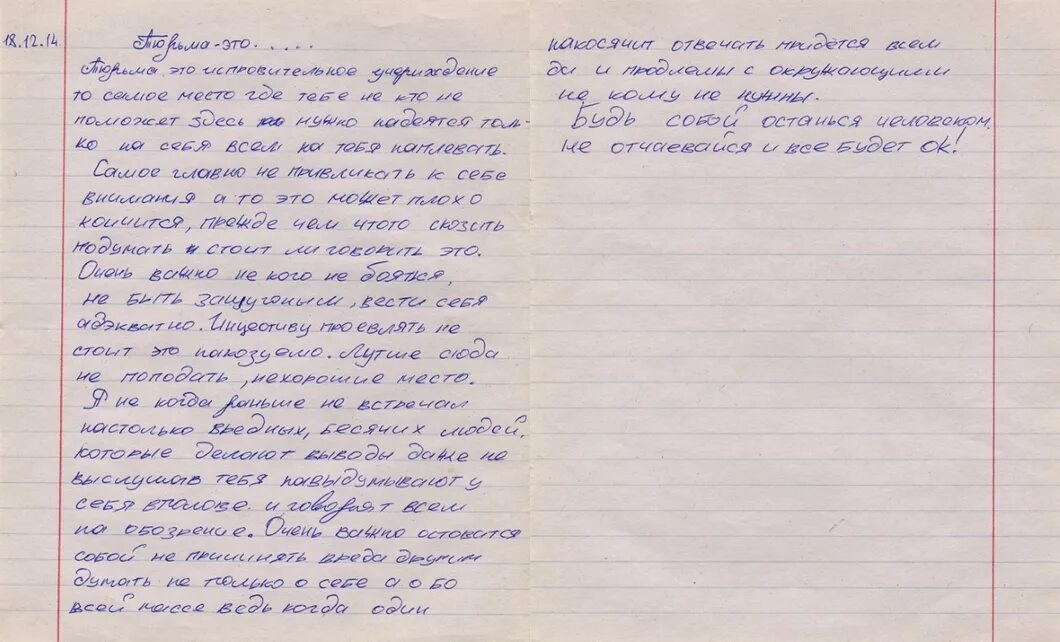 18.12.14
Тюрьма-это.....
Тюрьма это исправительное учериждение
то самое место где тебе не кто не
поможет здесь нужно надеятся толь-
ко на себя всем на тебя наплевать.
Самое главно не привликать к себе
внимания а то это может плохо
кончится, прежде чем чтото скозать
подумать стоит ли говорить это.
Очень важно не кого не боятся,
не быть защугоным, вести себя
адэкватно. Инцеотиву проевлять не
стоит это накозуемо. Лутше сюда
не пoподать, нехорошие место.
Я не когда раньше не встречал
настолько вредных, бесячих людей,
которые делают выводы даже не
выслушав тебя навыдумывают у
себя вголове и говорят всем
на обозрение. Очень важно остоватся
собой не причинять вреда другим
думать не только о себе а о бо
всей массе ведь когда один
накосячит отвечать придется всем
да и проблемы с окружающими
не кому не нужны.
Будь собой останься человеком.
не отчаевайся и все будет ок!